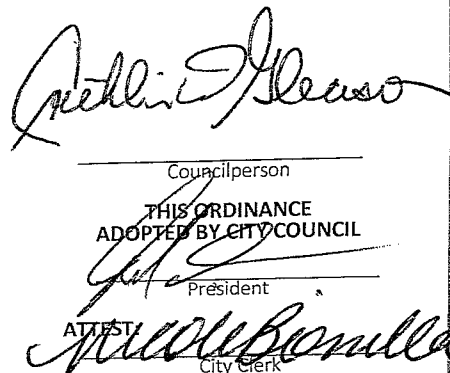 Gleason
Councilperson
THIS ORDINANCE
ADOPTED BY CITY COUNCIL
President
ATTEST:
Nicole Bonilla
City Clerk